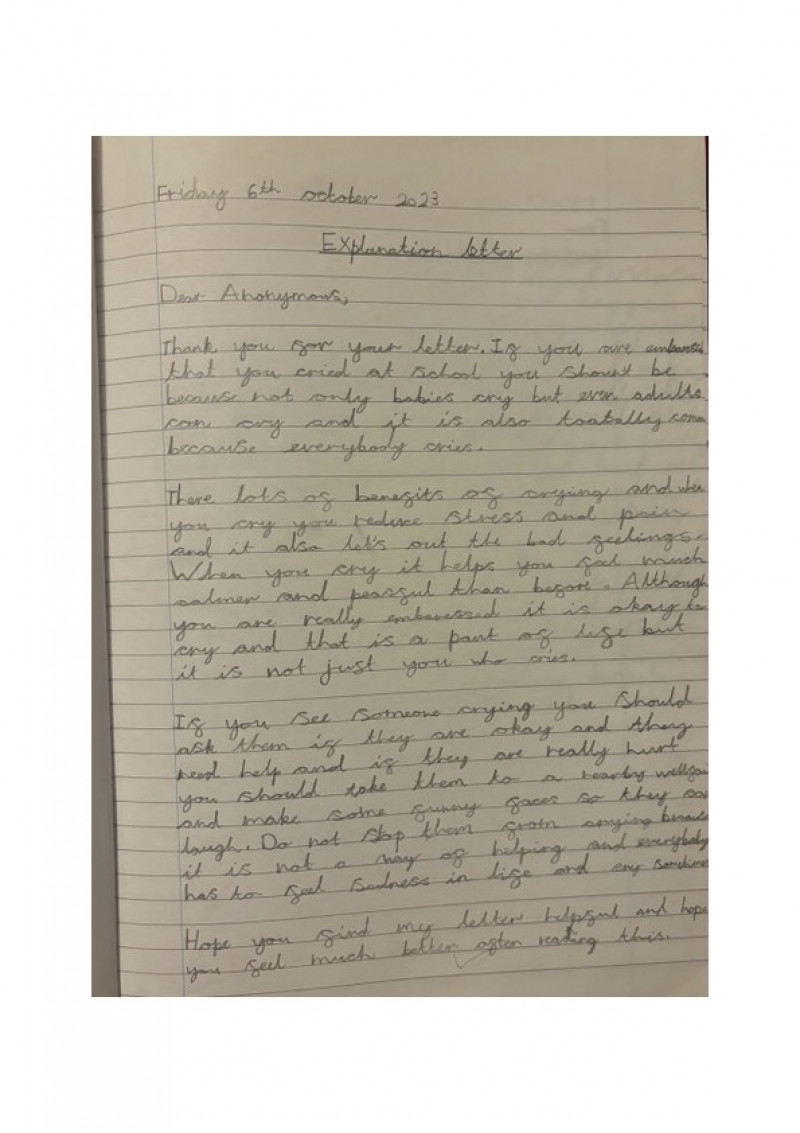 Friday 6th october 2023
Explanation letter
Dear Anonymous,
Thank you for your letter. If you are
that you cried at school you should't be
because not only babies cry but even adults
can cry and it is also toatally
because everybody cries.
There lots of benefits of crying and when
you cry you reduce stress and pain
and it also let's out the bad feelings.
When you cry it helps you feel much
calmer and peacful than before. Although
you are really embaressed it is okay to
cry and that is a part of life but
it is not just you who cries.
If you see someone crying you should
ask them if they are okay and they
need help and if they are really hurt
you should take them to a nearby
and make some funny faces so they can
laugh. Do not stop them from crying because
it is not a way of helping and everybody
has to feel sadness in life and cry sometimes
Hope you find my letter helpful and hope
you feel much better after reading this.